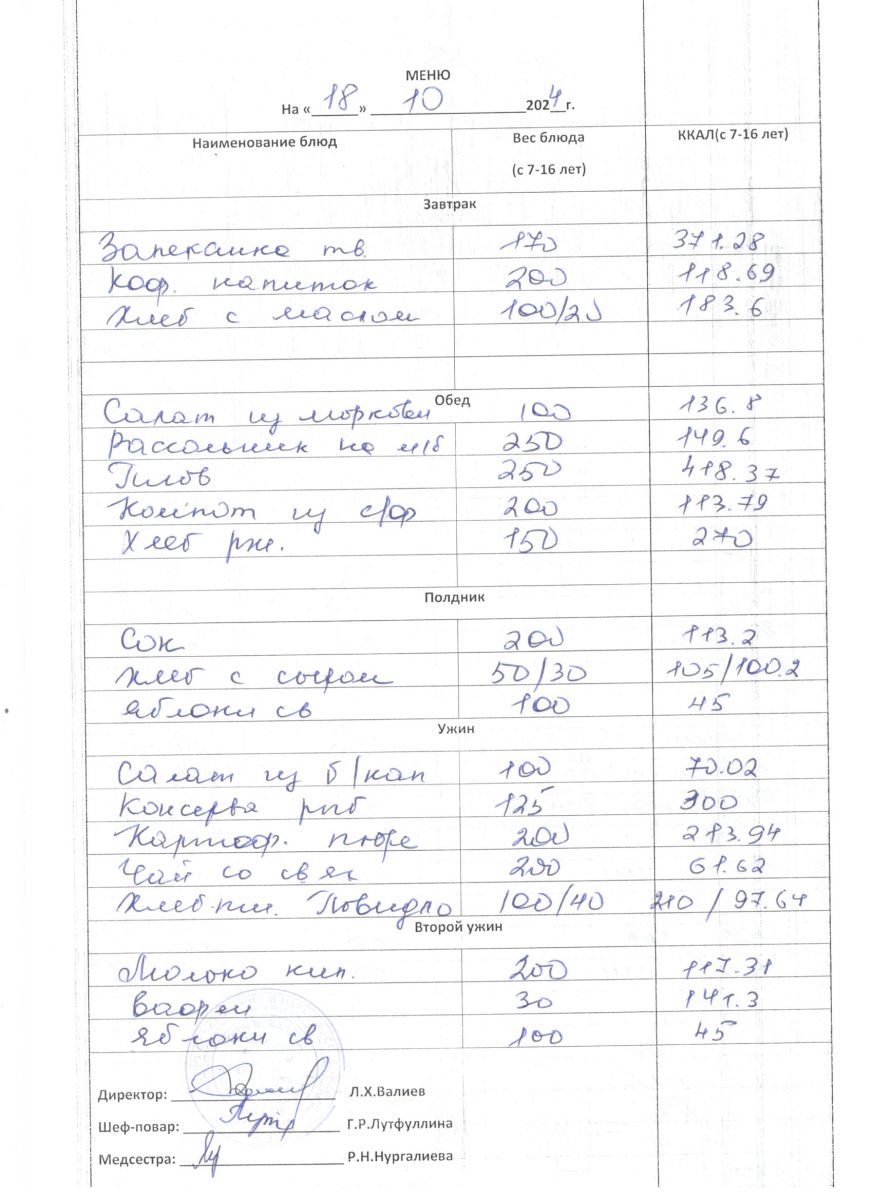 МЕНЮ
На «18» 10 2024 г.
Наименование блюд Вес блюда (с 7-16 лет) ККАЛ(с 7-16 лет)
Завтрак
Запеканка тв. 170 371.28
Коф. напиток 200 118.69
Хлеб с маслом 100/20 183.6
Обед
Салат из моркови 100 136.8
Рассольник на м/б 250 149.6
Плов 250 418.37
Компот из с/ф 200 113.79
Хлеб рж. 150 270
Полдник
Сок 200 113.2
Хлеб с сыром 50/30 105/100.2
Яблоки св 100 45
Ужин
Салат из б/кап 100 70.02
Консерва рыб 125 300
Картоф. пюре 200 213.94
Чай со св яг 200 61.62
Хлеб пш. Повидло 100/40 210 / 97.64
Второй ужин
Молоко кип. 200 117.31
Вафли 30 141.3
Яблоки св 100 45
Директор: Л.Х.Валиев
Шеф-повар: Г.Р.Лутфуллина
Медсестра: Р.Н.Нургалиева